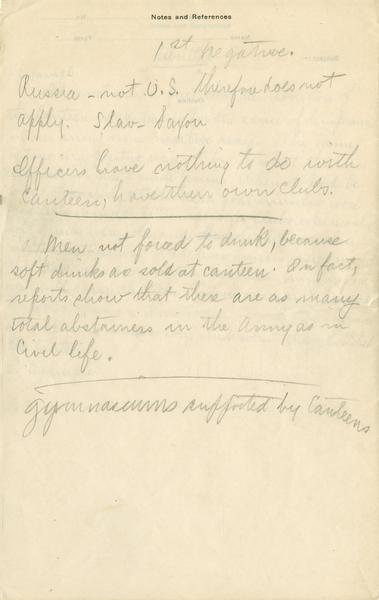 Notes and References
1st negative.
Russia - not U.S. therefore does not
apply. Slav - Saxon
Officers have nothing to do with
canteen, have their own clubs.
Men not forced to drink, because
soft drinks are sold at canteen. In fact,
reports show that there are as many
total abstainers in the Army as in
Civil life.
gymnasiums supported by Canteens